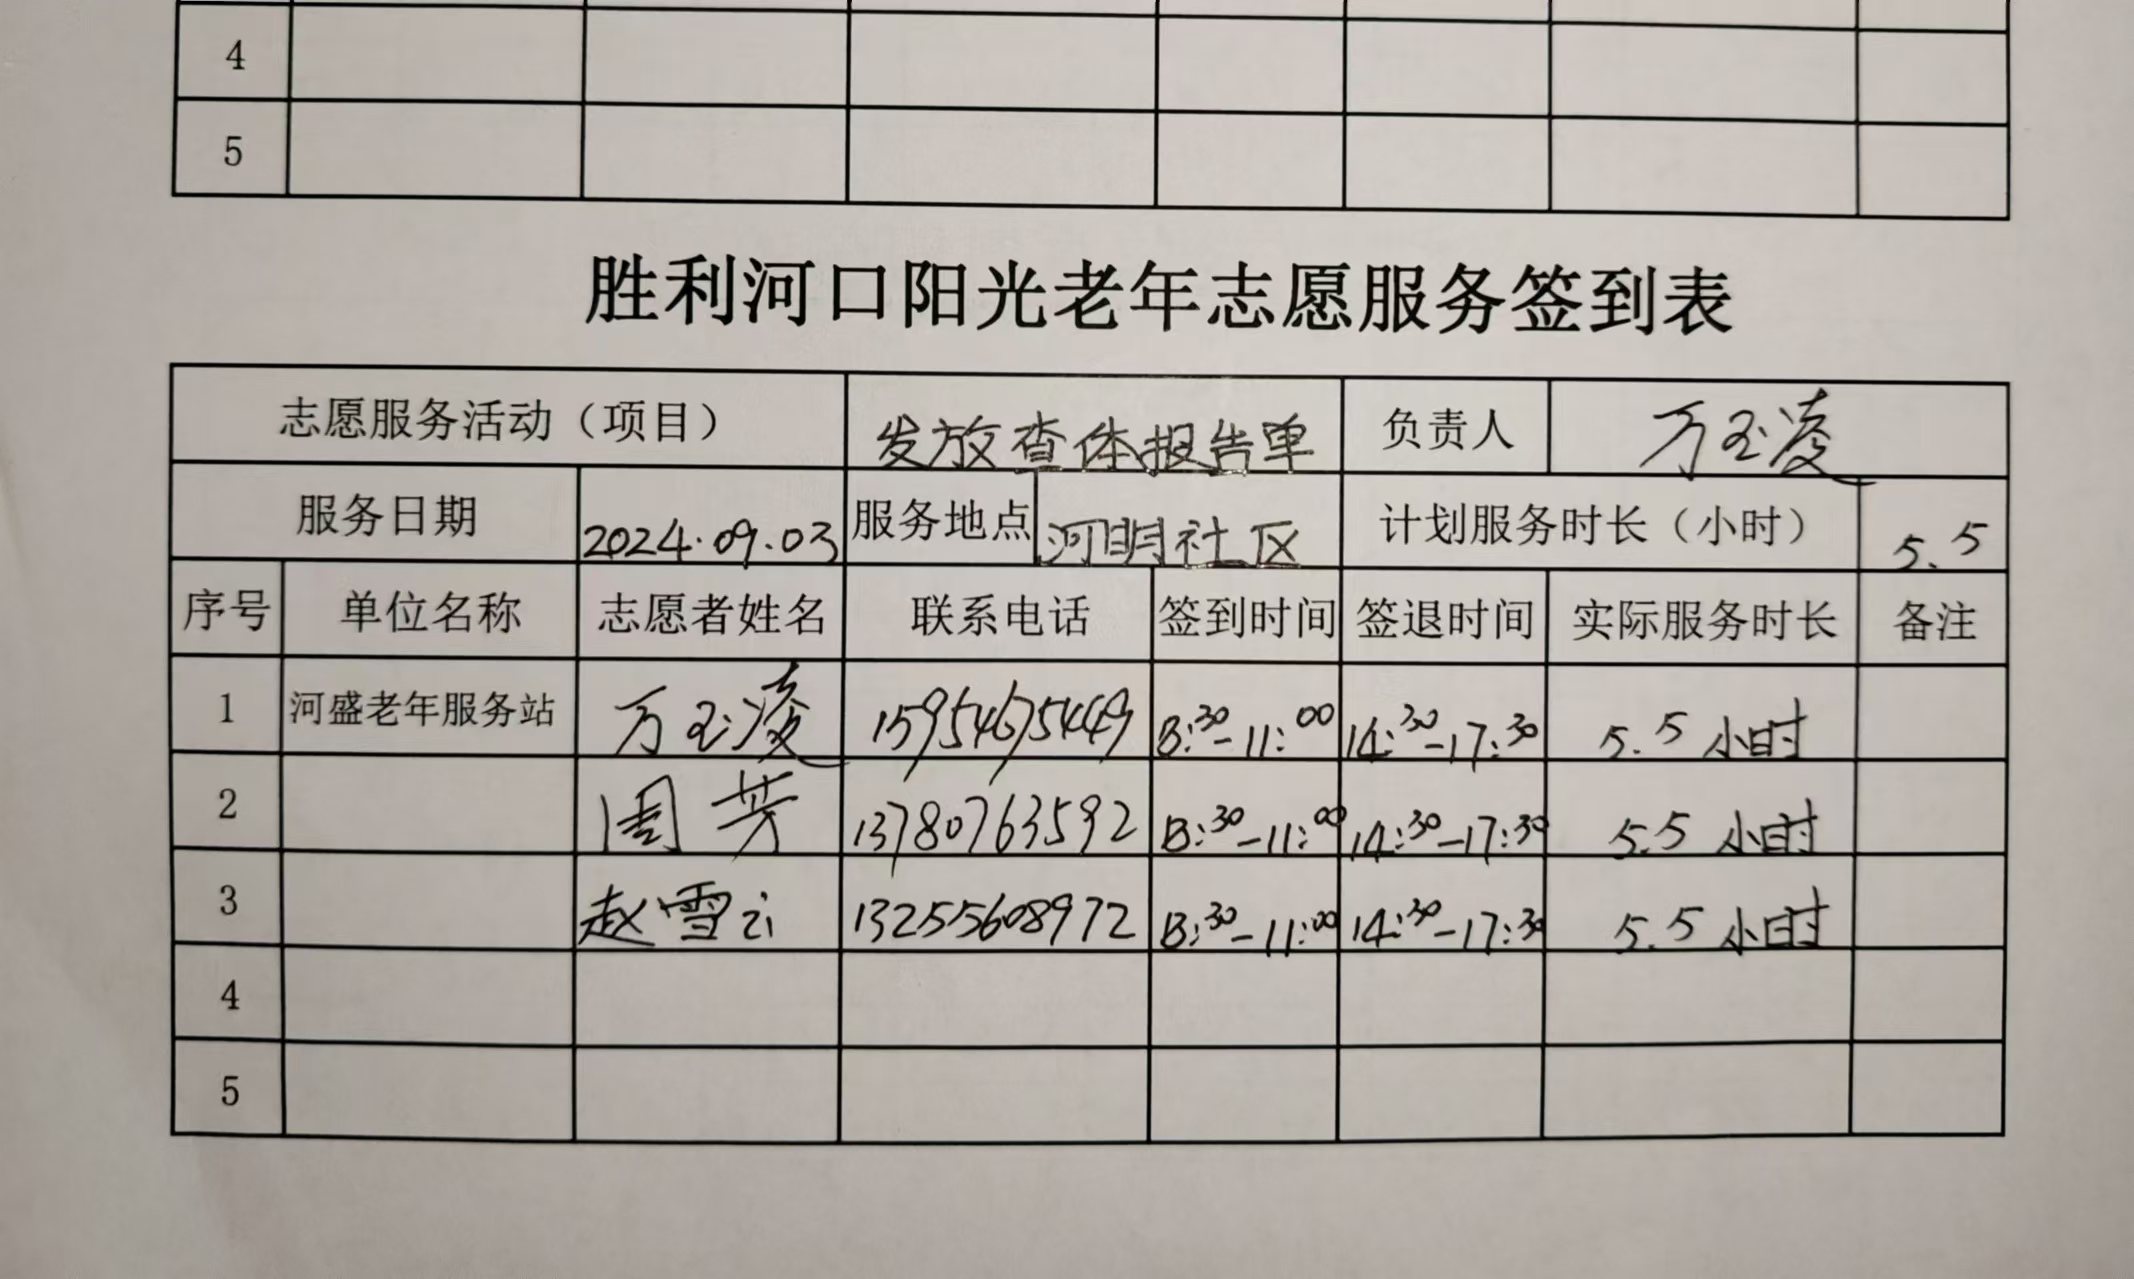 4
5
胜利河口阳光老年志愿服务签到表
志愿服务活动（项目） 发放查体报告单 负责人 万玉凌
服务日期 2024.09.03 服务地点 河明社区 计划服务时长（小时） 5.5
序号 单位名称 志愿者姓名 联系电话 签到时间 签退时间 实际服务时长 备注
1 河盛老年服务站 万玉凌 15954675449 8:30-11:00 14:30-17:30 5.5 小时
2 周芳 13780763592 8:30-11:00 14:30-17:30 5.5 小时
3 赵雪云 13255608972 8:30-11:00 14:30-17:30 5.5 小时
4
5